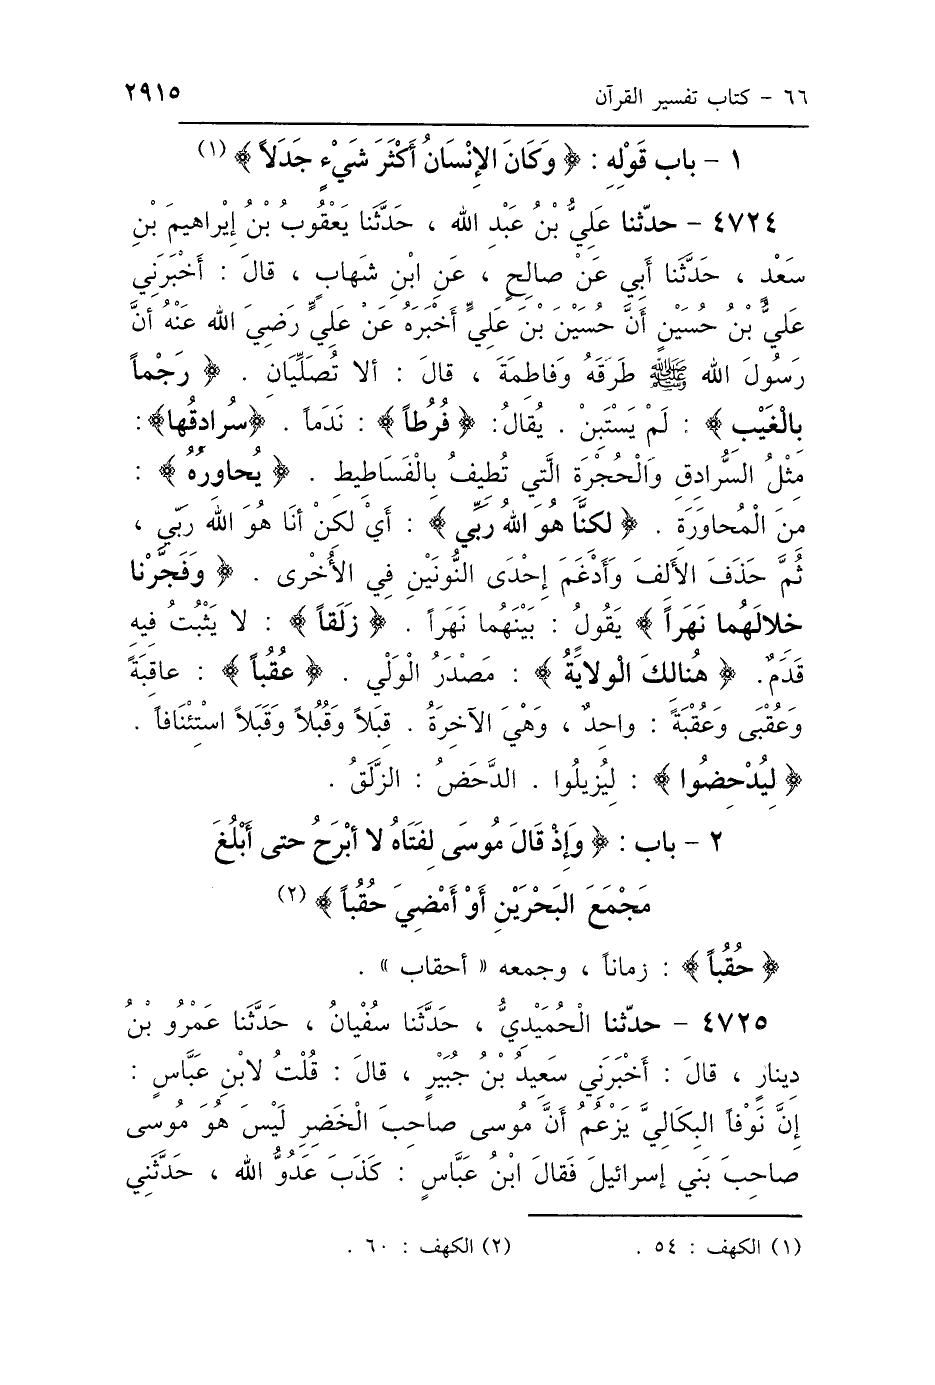 ٦٦ - كتاب تفسير القرآن ٢٩١٥
١ - باب قَوْلِهِ : ﴿ وَكَانَ الإِنْسَانُ أَكْثَرَ شَيْءٍ جَدَلاً ﴾ (١)
٤٧٢٤ - حدّثنا عَلِيُّ بْنُ عَبْدِ الله ، حَدَّثَنا يَعْقُوبُ بْنُ إِبْراهِيمَ بْنِ
سَعْدٍ ، حَدَّثَنا أَبي عَنْ صالِحٍ ، عَنِ ابْنِ شَهابٍ ، قالَ : أَخْبَرَنِي
عَلِيُّ بْنُ حُسَيْنٍ أَنَّ حُسَيْنَ بْنَ عَلِيٍّ أَخْبَرَهُ عَنْ عَلِيٍّ رَضِيَ الله عَنْهُ أَنَّ
رَسُولَ الله ﷺ طَرَقَهُ وَفَاطِمَةَ ، قالَ : أَلا تُصَلِّيَانِ . ﴿ رَجْماً
بِالْغَيْبِ ﴾ : لَمْ يَسْتَبِنْ . يُقالُ: ﴿ فُرُطاً ﴾ : نَدَماً . ﴿سُرادِقُها﴾ :
مِثْلُ السُّرادِقِ وَالْحُجْرَةِ الَّتِي تُطِيفُ بِالْفَسَاطِيطِ . ﴿ يُحاوِرُهُ ﴾ :
مِنَ الْمُحاوَرَةِ . ﴿ لكِنَّا هُوَ اللهُ رَبِّي ﴾ : أَيْ لكِنْ أَنَا هُوَ الله رَبِّي ،
ثُمَّ حَذَفَ الأَلِفَ وَأَدْغَمَ إِحْدَى النُّونَيْنِ فِي الأُخْرى . ﴿ وَفَجَّرْنا
خِلالَهُما نَهَراً ﴾ يَقُولُ : بَيْنَهُما نَهَراً . ﴿ زَلَقاً ﴾ : لا يَثْبُتُ فِيهِ
قَدَمٌ. ﴿ هُنالِكَ الْوِلايَةُ ﴾ : مَصْدَرُ الْوَلْيِ . ﴿ عُقُباً ﴾ : عاقِبَةً
وَعُقْبَى وَعُقْبَةً : واحِدٌ ، وَهْيَ الآخِرَةُ . قِبَلاً وَقُبُلاً وَقَبَلاً اسْتِئْنَافاً .
﴿ لِيُدْحِضُوا ﴾ : لِيُزِيلُوا . الدَّحَضُ : الزَّلَقُ .
٢ - باب : ﴿ وَإِذْ قَالَ مُوسَى لِفَتَاهُ لا أَبْرَحُ حتى أَبْلُغَ
مَجْمَعَ البَحْرَيْنِ أَوْ أَمْضِيَ حُقُباً ﴾ (٢)
﴿ حُقُباً ﴾ : زماناً ، وجمعه « أحقاب » .
٤٧٢٥ - حدّثنا الْحُمَيْدِيُّ ، حَدَّثَنا سُفْيانُ ، حَدَّثَنا عَمْرُو بْنُ
دِينارٍ ، قالَ : أَخْبَرَنِي سَعِيدُ بْنُ جُبَيْرٍ ، قالَ : قُلْتُ لابْنِ عَبَّاسٍ :
إِنَّ نَوْفاً البِكَالِيَّ يَزْعُمُ أَنَّ مُوسى صاحِبَ الْخَضِرِ لَيْسَ هُوَ مُوسى
صاحِبَ بَنِي إِسرائيلَ فَقالَ ابْنُ عَبَّاسٍ : كَذَبَ عَدُوُّ الله ، حَدَّثَنِي
(١) الكهف : ٥٤ . (٢) الكهف : ٦٠ .